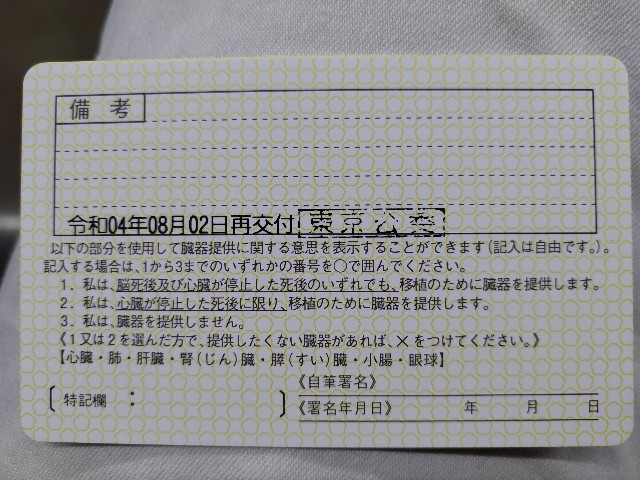 備考
令和04年08月02日再交付 東京公委
以下の部分を使用して臓器提供に関する意思を表示することができます(記入は自由です。)。
記入する場合は、1から3までのいずれかの番号を○で囲んでください。
1. 私は、脳死後及び心臓が停止した死後のいずれでも、移植のために臓器を提供します。
2. 私は、心臓が停止した死後に限り、移植のために臓器を提供します。
3. 私は、臓器を提供しません。
《1又は2を選んだ方で、提供したくない臓器があれば、×をつけてください。》
【心臓・肺・肝臓・腎(じん)臓・膵(すい)臓・小腸・眼球】
〔特記欄 : 〕
《自筆署名》
《署名年月日》 年 月 日